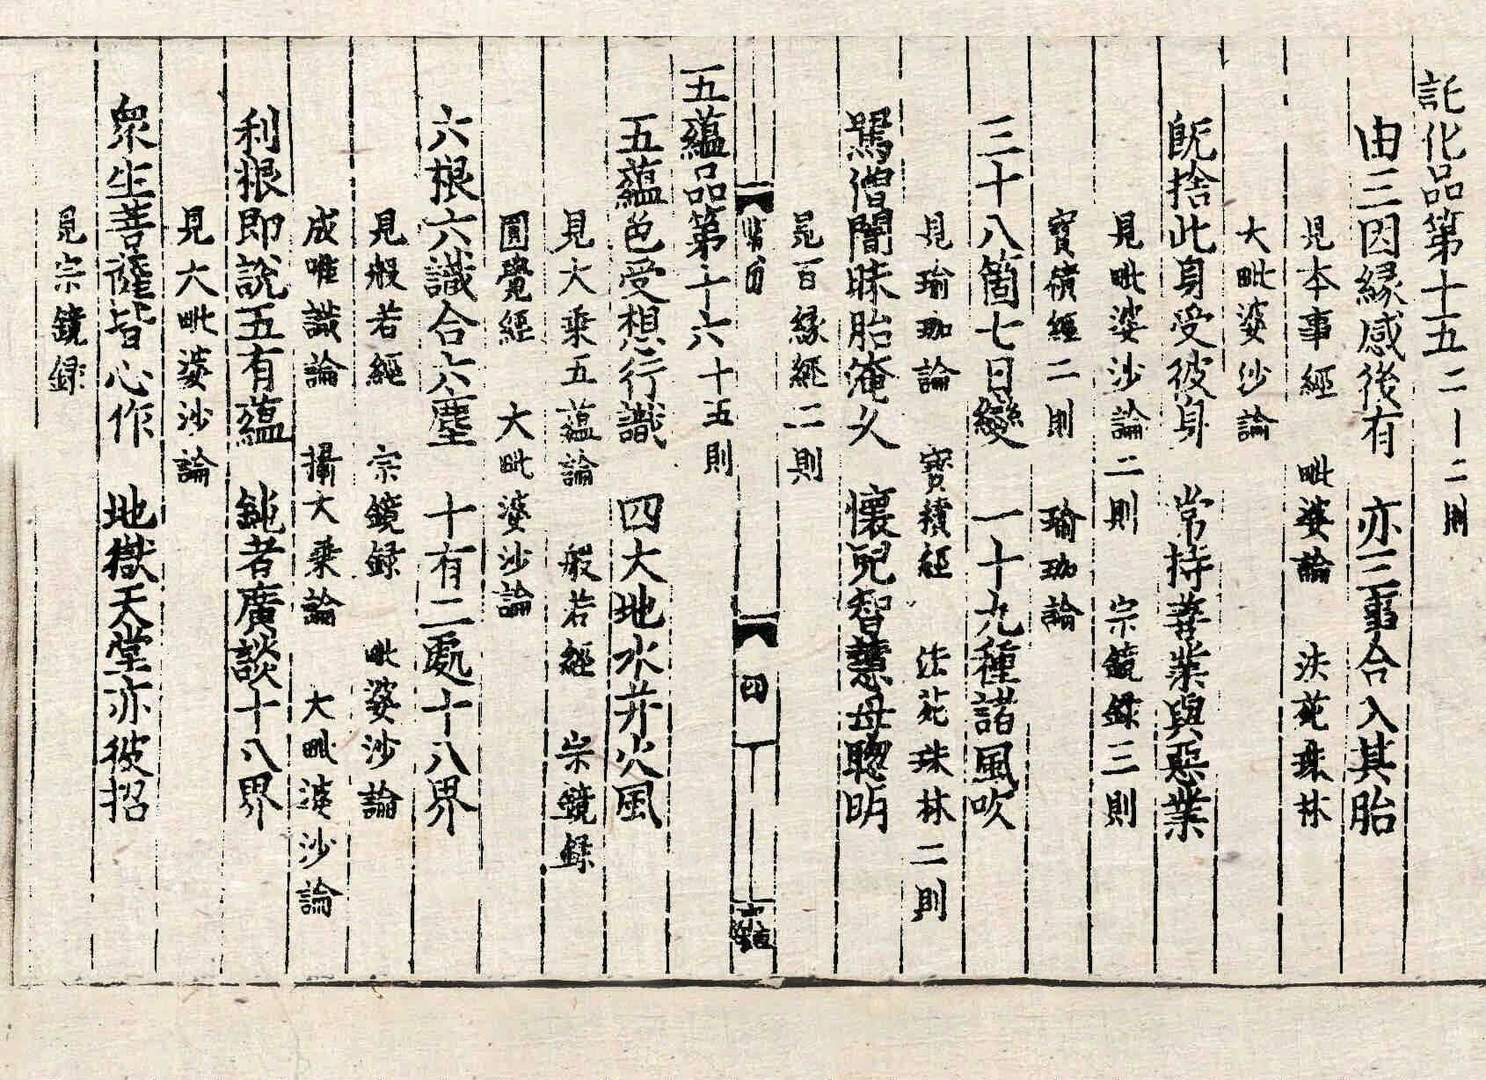 託化品第十五 二十二則
由三因縁感後有 亦三事合入其胎
見本事經 毗婆論 法苑珠林
大毗婆沙論
旣捨此身受彼身 常持善業與惡業
見毗婆沙論二則 宗鏡録三則
寶積經二則 瑜珈論
三十八箇七日變 一十九種諸風吹
見瑜珈論 寶積經 法苑珠林二則
罵僧闇昧胎淹久 懷兒智慧母聰明
見百縁經二則
四
五蘊品第十六 十五則
五蘊色受想行識 四大地水并火風
見大乘五蘊論 般若經 宗鏡録
圓覺經 大毗婆沙論
六根六識合六塵 十有二處十八界
見般若經 宗鏡録 毗婆沙論
成唯識論 攝大乘論 大毗婆沙論
利根即說五有蘊 鈍者廣談十八界
見大毗婆沙論
衆生菩薩皆心作 地獄天堂亦彼招
見宗鏡録